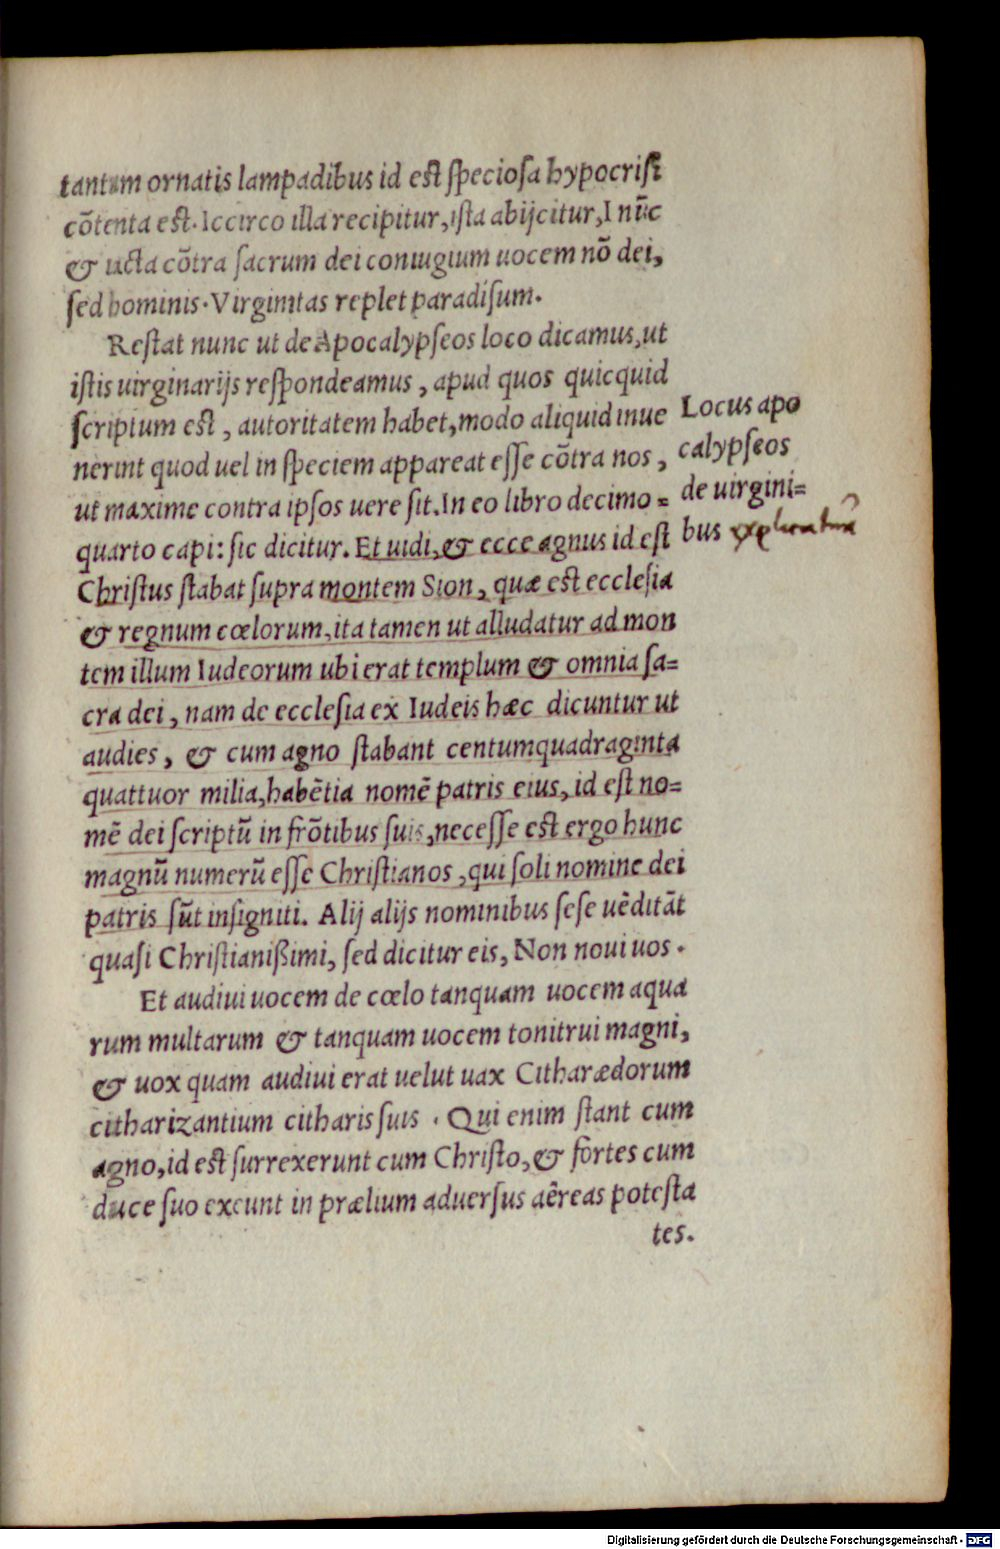 tantum ornatis lampadibus id est speciosa hypocrisi
cōtenta est. Iccirco illa recipitur, ista abijcitur, I nūc
& iacta cōtra sacrum dei coniugium uocem nō dei,
sed hominis. Virginitas replet paradisum.
Restat nunc ut de Apocalypseos loco dicamus, ut
istis uirginarijs respondeamus, apud quos quicquid
scriptum est, autoritatem habet, modo aliquid inue
nerint quod uel in speciem appareat esse cōtra nos,
ut maxime contra ipsos uere sit. In eo libro decimo=
quarto capi: sic dicitur. Et uidi, & ecce agnus id est
Christus stabat supra montem Sion, quæ est ecclesia
& regnum cœlorum, ita tamen ut alludatur ad mon
tem illum Iudeorum ubi erat templum & omnia sa=
cra dei, nam de ecclesia ex Iudeis hæc dicuntur ut
audies, & cum agno stabant centumquadraginta
quattuor milia, habētia nomē patris eius, id est no=
mē dei scriptū in frōtibus suis, necesse est ergo hunc
magnū numerū esse Christianos, qui soli nomine dei
patris sūt insigniti. Alij alijs nominibus sese uēditāt
quasi Christianißimi, sed dicitur eis, Non noui uos.
Et audiui uocem de cœlo tanquam uocem aqua
rum multarum & tanquam uocem tonitrui magni,
& uox quam audiui erat uelut uax Citharædorum
citharizantium citharis suis. Qui enim stant cum
agno, id est surrexerunt cum Christo, & fortes cum
duce suo exeunt in prælium aduersus aëreas potesta
tes.
Locus apo
calypseos
de uirgini=
bus
Digitalisierung gefördert durch die Deutsche Forschungsgemeinschaft - DFG